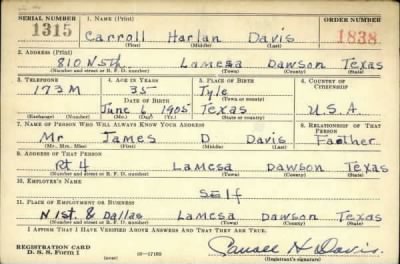 SERIAL NUMBER 1. NAME (Print) ORDER NUMBER
1315 Carroll Harlan Davis 1838
(First) (Middle) (Last)
2. ADDRESS (Print)
810 N 5th Lamesa Dawson Texas
(Number and street or R. F. D. number) (Town) (County) (State)
3. TELEPHONE 4. AGE IN YEARS 5. PLACE OF BIRTH 6. COUNTRY OF CITIZENSHIP
173 M 35 Tyle
DATE OF BIRTH (Town or county)
June 1, 1905 Texas U.S.A.
(Exchange) (Number) (Mo.) (Day) (Yr.) (State or country)
7. NAME OF PERSON WHO WILL ALWAYS KNOW YOUR ADDRESS 8. RELATIONSHIP OF THAT PERSON
Mr James D Davis Father
(Mr., Mrs., Miss) (First) (Middle) (Last)
9. ADDRESS OF THAT PERSON
Rt 4 Lamesa Dawson Texas
(Number and street or R. F. D. number) (Town) (County) (State)
10. EMPLOYER'S NAME
Self
11. PLACE OF EMPLOYMENT OR BUSINESS
N 1st. & Dallas Lamesa Dawson Texas
(Number and street or R. F. D. number) (Town) (County) (State)
I AFFIRM THAT I HAVE VERIFIED ABOVE ANSWERS AND THAT THEY ARE TRUE.
REGISTRATION CARD
D. S. S. Form 1 (over) 16—17105 Carroll H Davis.
(Registrant's signature)